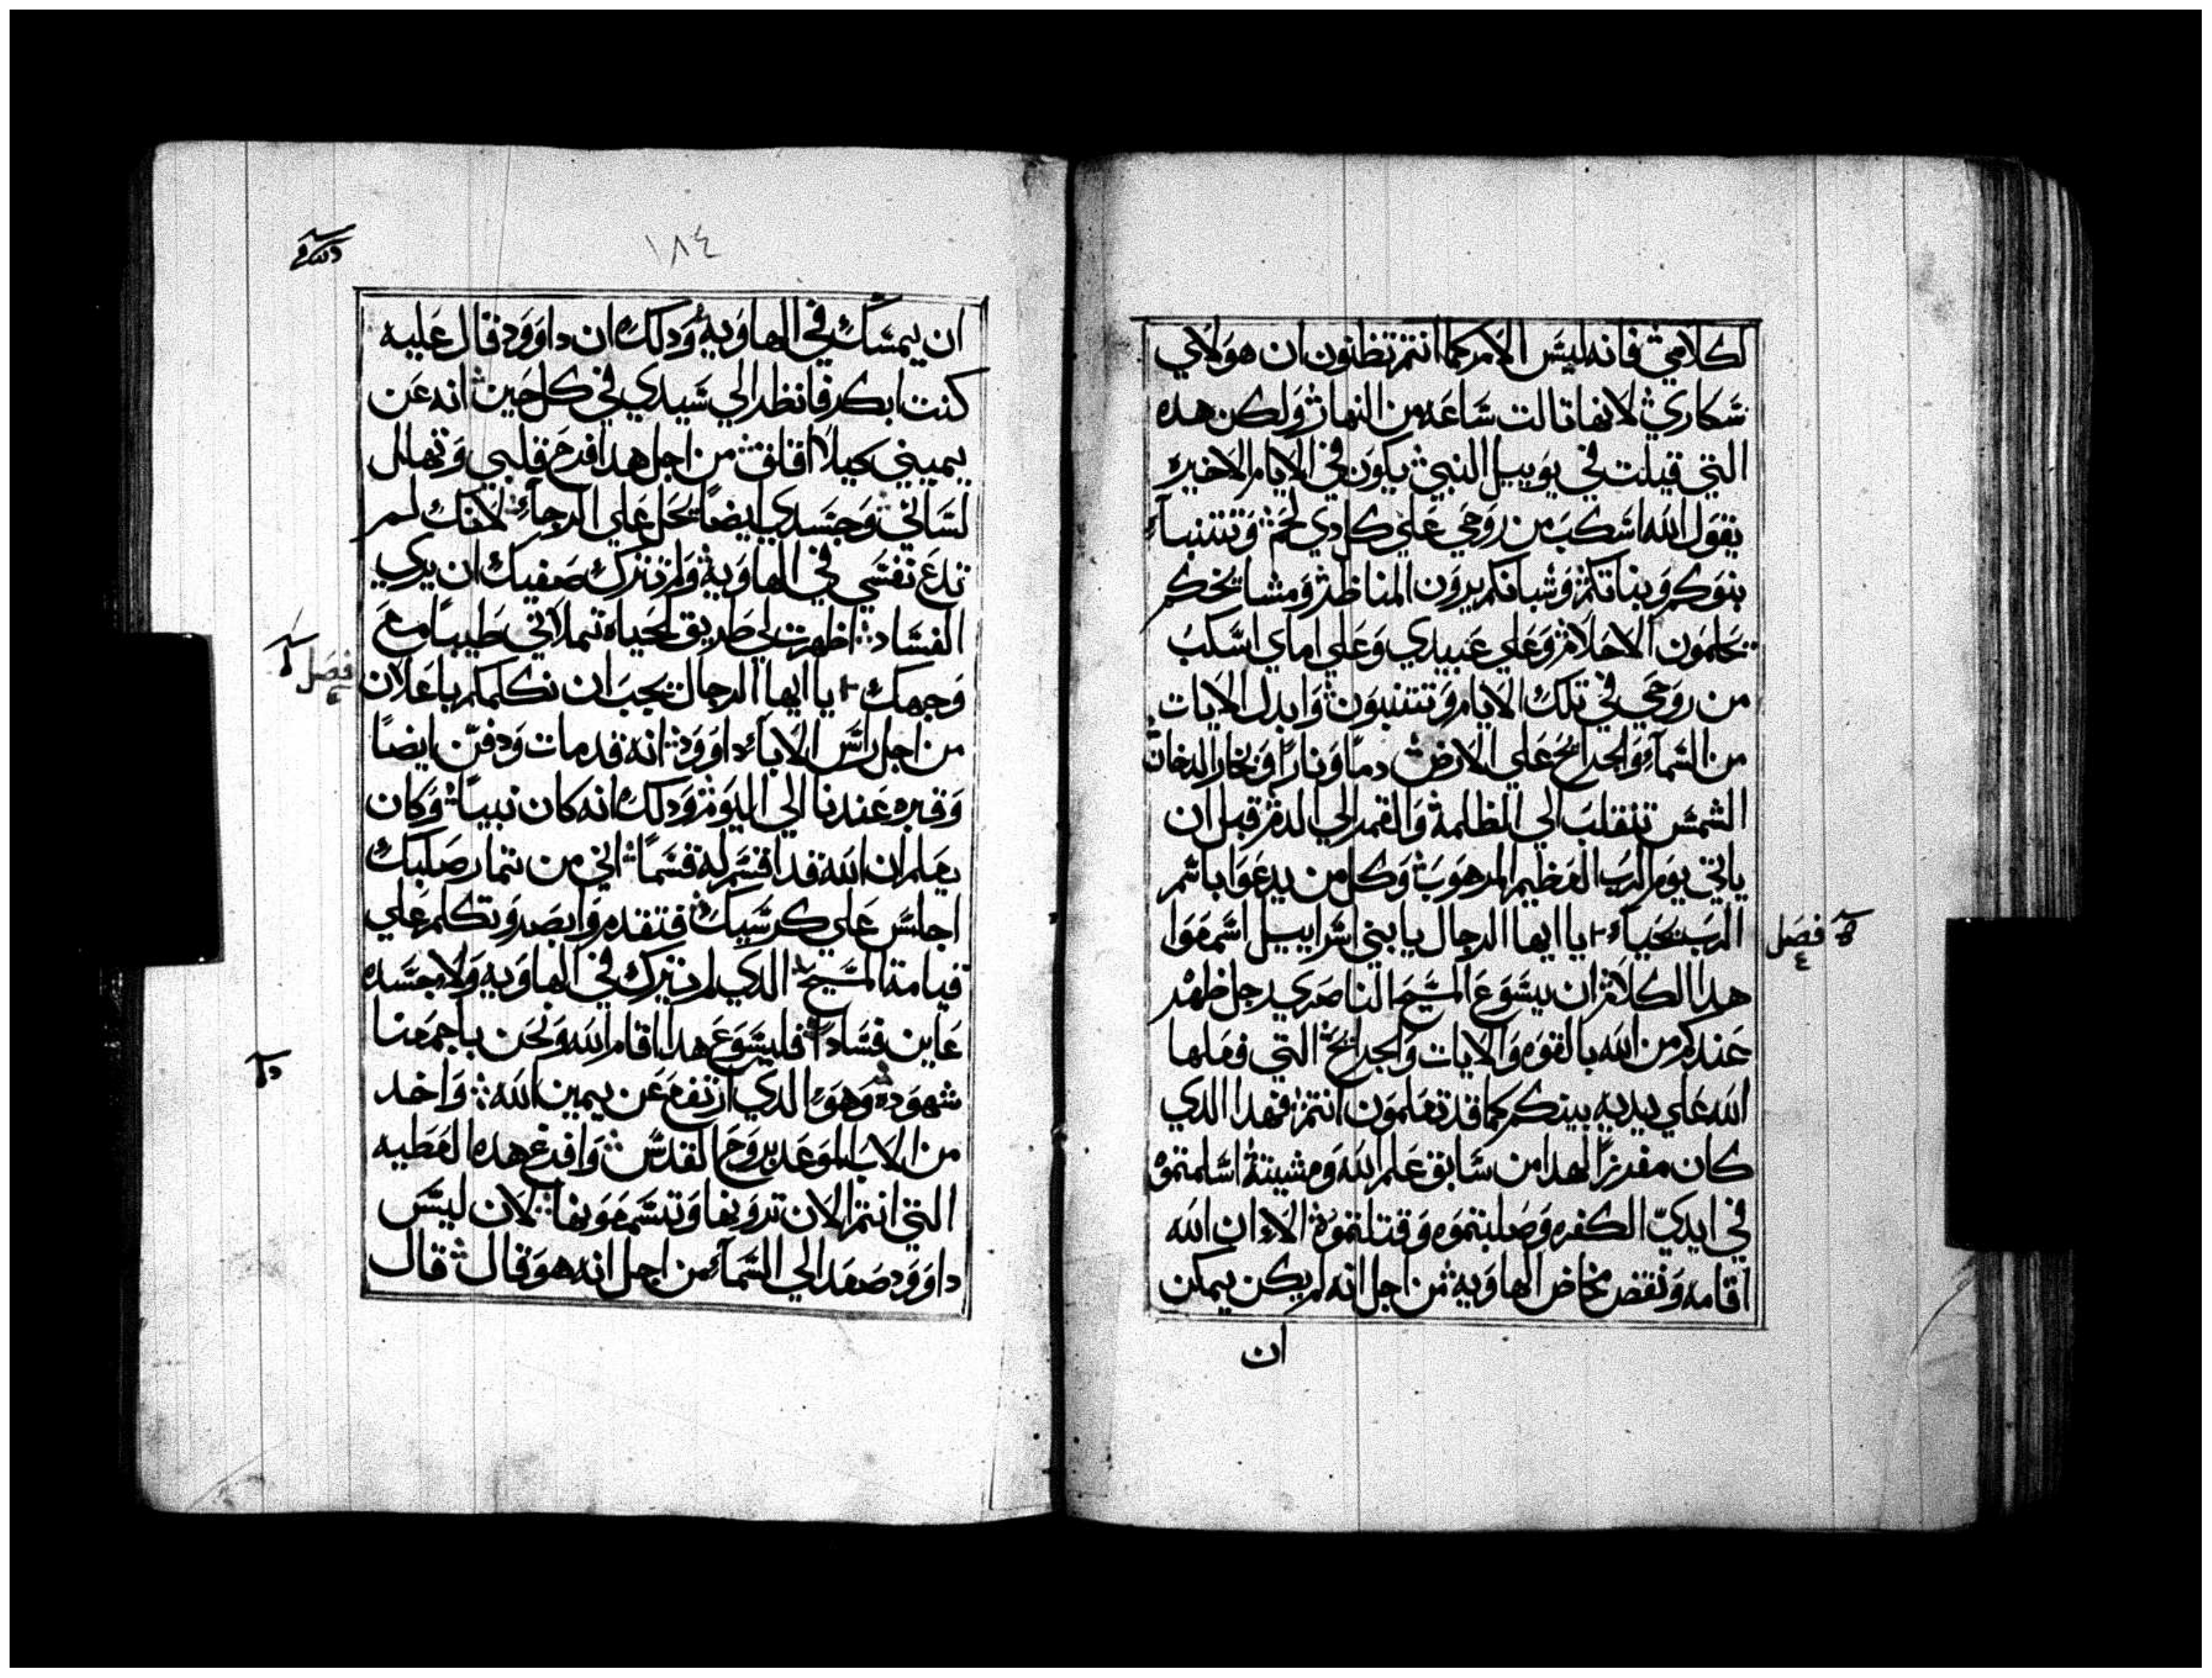 لكلامي فانه ليس الامر كما انتم تظنون ان هولاي
سكاري لانها تالت ساعه من النهار ولكن هده
التي قيلت في يوييل النبي يكون في الايام الاخيره
يقول الله اسكب من روحي علي كل دي لحم وتتنبآء
بنوكم وبناتكم وشبانكم يرون المناظر ومشايخكم
يحلمون الاحلام وعلي عبيدي وعلي اماي اسكب
من روحي في تلك الايام وتتنبون وابدل الايات
من السمآء والجرايح علي الارض دماً وناراً وبخار الدخان
الشمس تنقلب الي الظلمة والقمر الي الدم قبل ان
ياتي يوم الرب العظيم المرهوب وكل من يدعوا باسم
الرب يحياء يا ايها الرجال يا بني اسراييل اسمعوا
فصل
٤
هدا الكلام ان يسوع المسيح الناصري رجل ظهر
عندكم من الله بالقوه والايات والجرايح التي فعلها
الله علي يديه بينكم كما قد تعلمون انتم فهدا الدي
كان مفرزاً لهدا من سابق علم الله ومشيتة اسلمتموه
في ايدي الكفره وصلبتموه وقتلتموه الاء ان الله
اقامه ونقض مخاض الهاوية من اجل انه لم يكن يمكن
ان
١٨٤
ان يمسك في الهاوية ودلك ان داوود قال عليه
كنت ابكر فانظر الي سيدي في كل حين انه عن
يميني كيلا اقلق من اجل هدا فرح قلبي وتهلل
لساني وجسدي ايضاً يحل علي الرجاء لانك لم
تدع نفسي في الهاوية ولم تترك صفيك ان يري
الفساد اظهرت لي طريق الحياه تملاني طيباً مع
وجهك يا ايها الرجال يجب ان نكلمكم باعلان
فصل
٤
من اجل راس الاباء داوود انه قد مات ودفن ايضاً
وقبره عندنا الي اليوم ودلك انه كان نبياً وكان
يعلم ان الله قد اقسم له قسماً اني من تمار صلبك
اجلس علي كرسيك فتقدم وابصر وتكلم علي
قيامة المسيح الدي لم يترك في الهاويه ولا جسده
عاين فساداً فليسوع هدا اقام الله ونحن باجمعنا
شهوده وهو الدي ارتفع عن يمين الله واخد
من الاب الموعد بروح القدس وافرغ هده العطيه
التي انتم الان ترونها وتسمعونها لان ليس
داوود صعد الي السماء من اجل انه هو قال قال